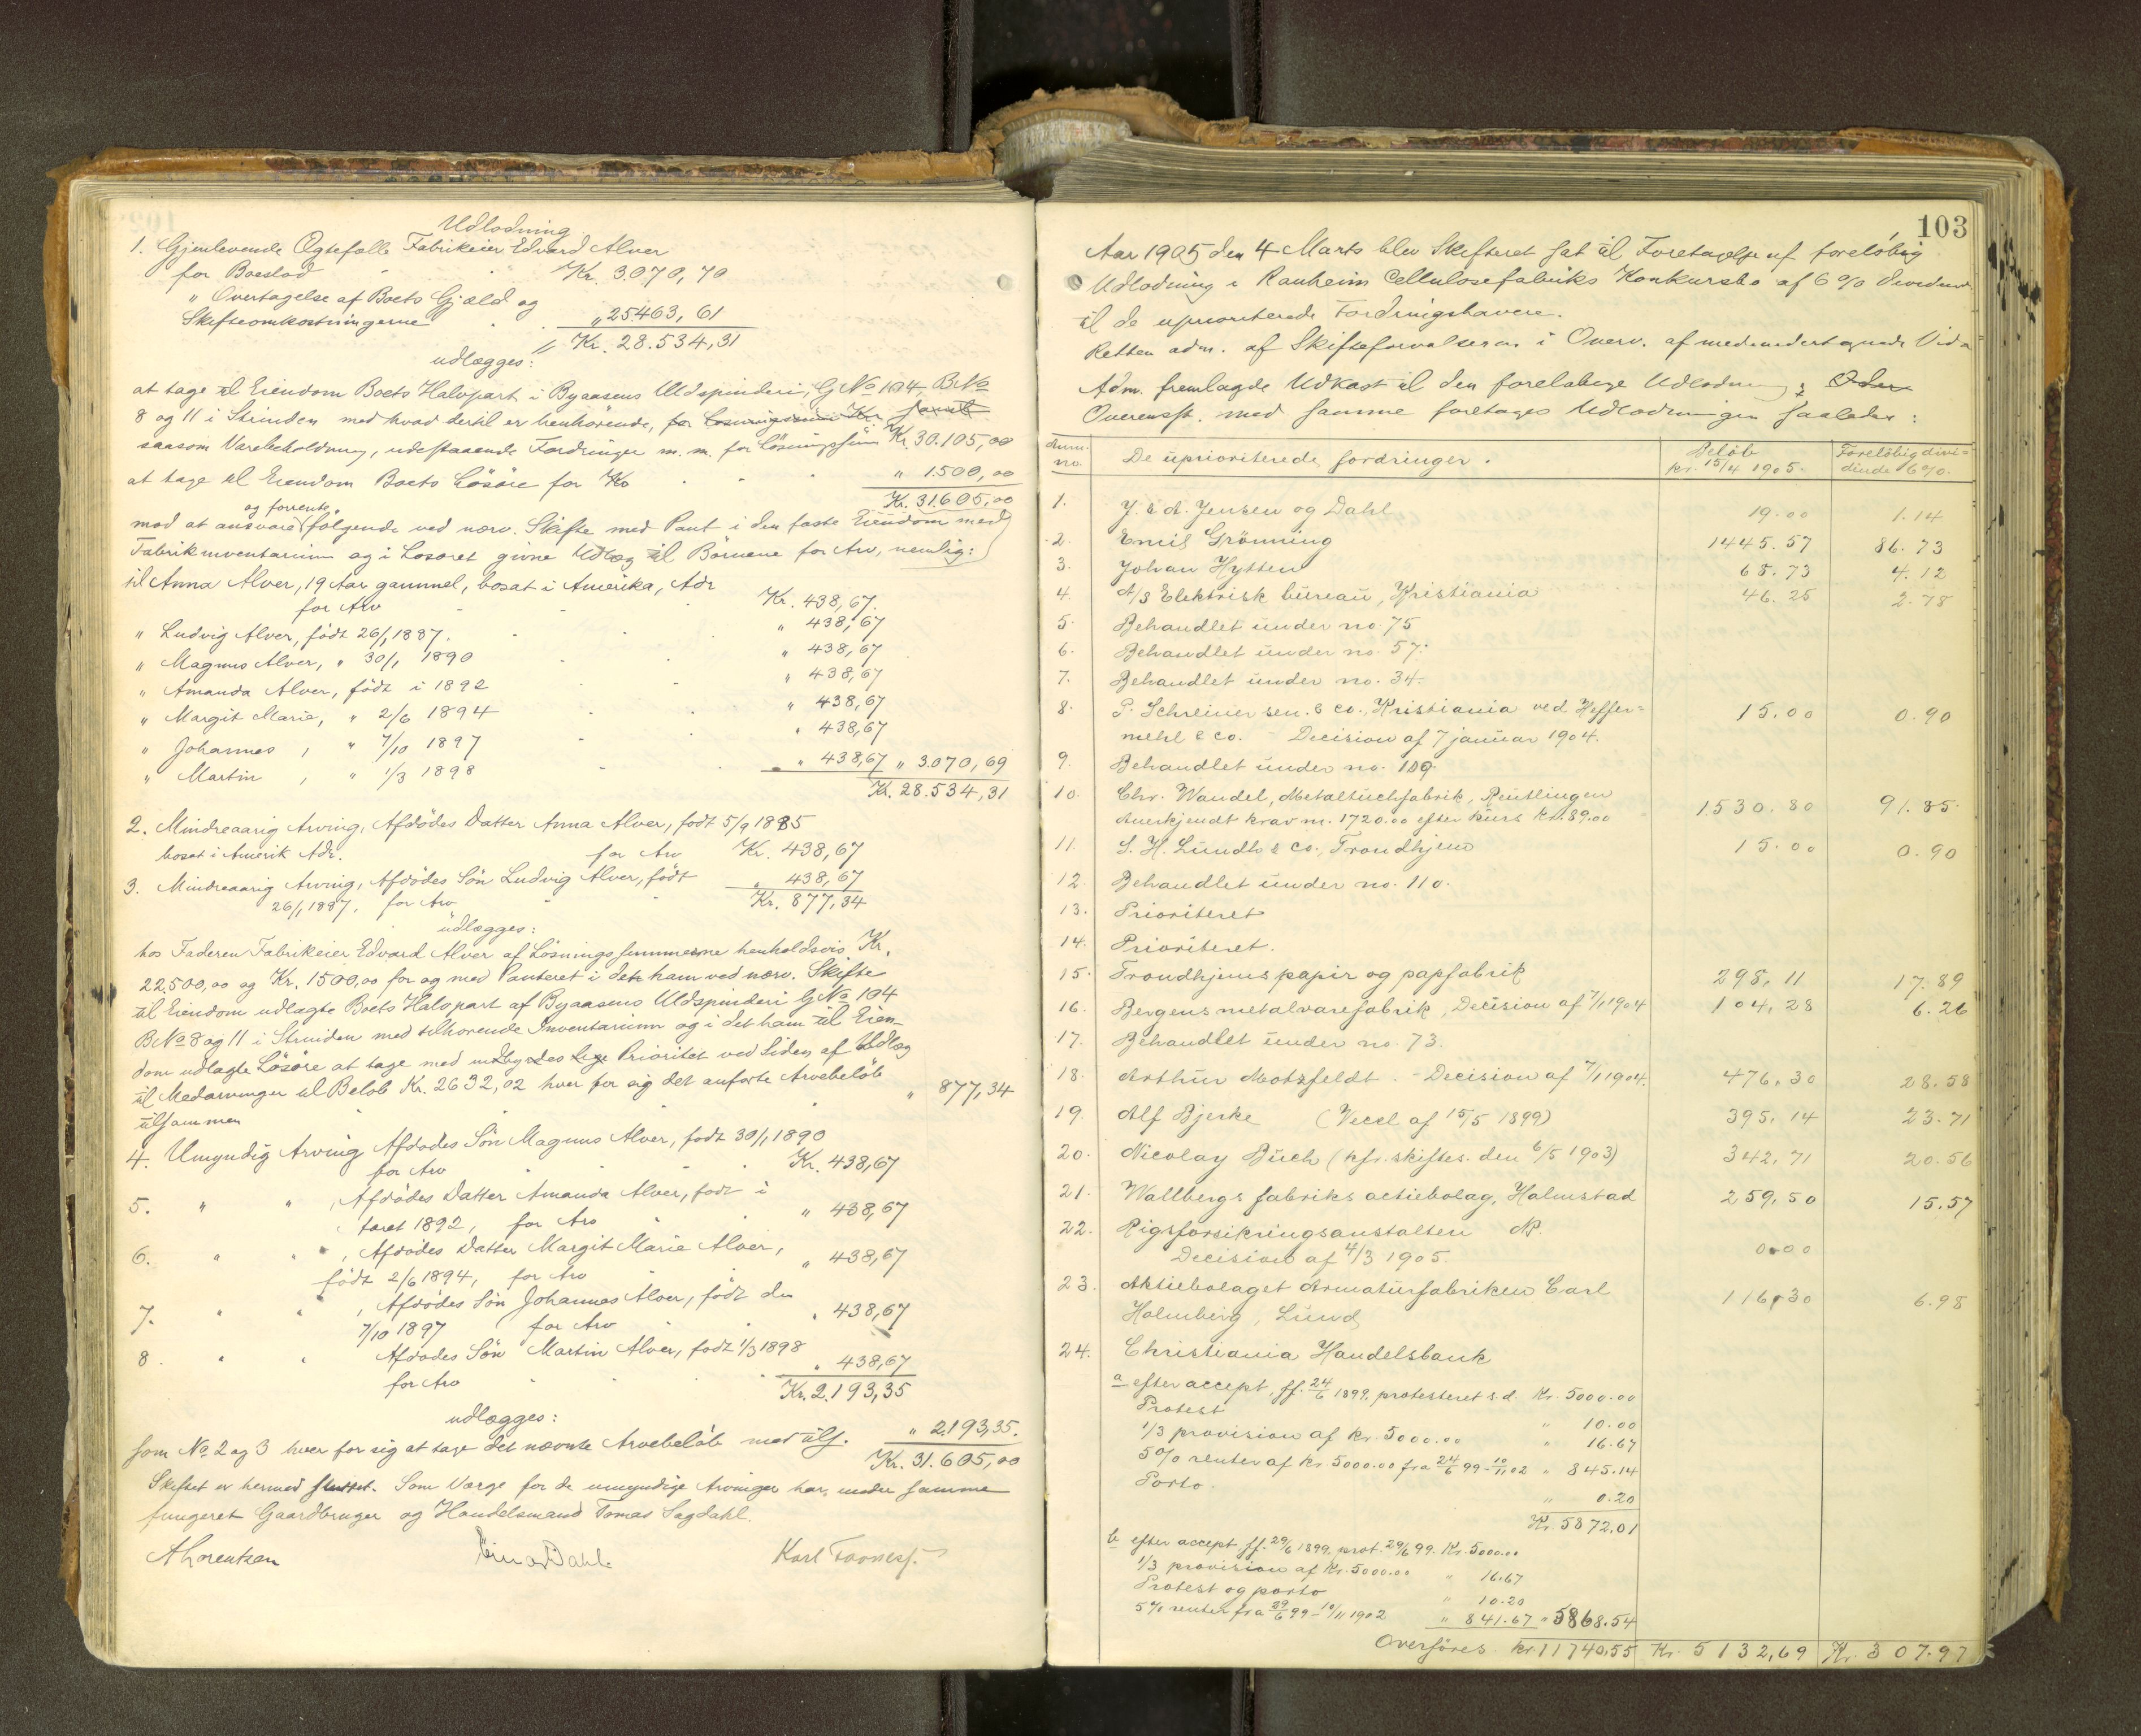 Udlodning
1. Gjenlevende Ægtefælle Fabrikeier Edvard Alver
for Boeslod " " Kr. 3.070,70
" Overtagelse af Boets Gjæld og
Skifteomkostningerne " . . " 25463,61
Kr. 28.534,31
udlægges:
at tage til Eiendom Boets Halvpart i Byaasens Uldspinderi, G No 104, B No
8 og 11 i Strinden med hvad dertil er henhørende, for Løsningssum Kr. samt
saasom Varebeholdning, udestaaende Fordringer m. m. for Løsningssum Kr. 30.105,00
at tage til Eiendom Boets Løsøre for Kr . . . " 1.500,00
Kr. 31.605,00
og forrente
mod at ansvare følgende ved nærv. Skifte med Pant i den faste Eiendom med
Fabrikinventarium og i Løsøret givne Udlæg til Børnene for Arv, nemlig:
til Anna Alver, 19 Aar gammel, bosat i Amerika, Adr
for Arv - - Kr. 438,67.
" Ludvig Alver, født 26/1 1887. . . " 438,67
" Magnus Alver, " 30/1 1890 . . " 438,67
" Amanda Alver, født i 1892 - - " 438,67
" Margit Marie, " 2/6 1894 . . " 438,67
" Johannes , " 7/10 1897 - . " 438,67
" Martin , " 1/3 1898 - . " 438,67 " 3.070,69
Kr. 28.534,31
2. Mindreaarig Arving, Afdødes Datter Anna Alver, født 5/9 1885
bosat i Amerik Adr. for Arv Kr. 438,67
3. Mindreaarig Arving, Afdødes Søn Ludvig Alver, født
26/1 1887, for Arv - - " 438,67
Kr. 877,34
udlægges:
hos Faderen Fabrikeier Edvard Alver af Løsningssummerne henholdsvis Kr.
22.500,00 og Kr. 1500,00 for og med Panteret i det ham ved nærv. Skifte
til Eiendom udlagte Boets Halvpart af Byaasens Uldspinderi G No 104
B No 8 og 11 i Strinden med tilhørende Inventarium og i det ham til Eien-
dom udlagte Løsøre at tage med indbyrdes lige Prioritet ved Siden af Udlæg
til Medarvinger til Beløb Kr. 2632,02 hver for sig det anførte Arvebeløb
tilsammen . . . " 877,34
4. Umyndig Arving Afdødes Søn Magnus Alver, født 30/1 1890
for Arv " " . Kr. 438,67
5. " " , Afdødes Datter Amanda Alver, født i
Aaret 1892, for Arv " . " 438,67
6. " " , Afdødes Datter Margit Marie Alver,
født 2/6 1894, for Arv " " 438,67
7. " " , Afdødes Søn Johannes Alver, født den
7/10 1897 for Arv " . " 438,67
8. " " Afdødes Søn Martin Alver, født 1/3 1898
for Arv " . . " 438,67
Kr. 2.193,35
udlægges:
som No 2 og 3 hver for sig at tage det nævnte Arvebeløb med tils. " 2.193,35.
Kr. 31.605,00
Skiftet er hermed sluttet. Som Værge for de umyndige Arvinger har under samme
fungeret Gaardbruger og Handelsmand Tomas Sagdahl.
A Lorentzen Einar Dahl Karl
103
Aar 1905 den 4 Marts blev Skifteret sat til Foretagelse af foreløbig
Udlodning i Ranheim Cellulosefabriks Konkursbo af 6 % Dividende
til de uprioriterede Fordringshavere.
Retten adm. af Skifteforvalteren i Overv. af medundertegnede Vidn
Adm. fremlagde Udkast til den foreløbige Udlodning;
Overensst. med samme foretages Udlodningen saaledes:
Anm. no. De uprioriterede fordringer. Beløb kr. 15/4 1905. Foreløbig divi= dende 6%.
1. J. & A. Jensen og Dahl 19.00 1.14
2. Emil Grönning 1445.57 86.73
3. Johan Hytten 68.73 4.12
4. A/S Elektrisk bureau, Kristiania 46.25 2.78
5. Behandlet under no. 75
6. Behandlet under no. 57.
7. Behandlet under no. 34.
8. P. Schreiner sen. & co., Kristiania ved Heffer= 15.00 0.90
mehl & co. - Decision af 7 januar 1904.
9. Behandlet under no. 109.
10. Chr. Wandel, Metaltuchfabrik, Reutlingen 1530.80 91.85
Anerkjendt krav m. 1720.00 efter kurs kr. 89.00
11. S. H. Lundh & co., Trondhjem 15.00 0.90
12. Behandlet under no. 110.
13. Prioriteret
14. Prioriteret.
15. Trondhjems papir og papfabrik 298.11 17.89
16. Bergens metalvarefabrik, Decision af 7/1 1904 104.28 6.26
17. Behandlet under no. 73.
18. Arthur Motzfeldt. - Decision af 7/1 1904. 476.30 28.58
19. Alf Bjerke (Vecel af 15/5 1899) 395.14 23.71
20. Nicolay Buch (kfr. skiftes. den 6/5 1903) 342.71 20.56
21. Wallbergs fabriks actiebolag, Halmstad 259.50 15.57
22. Rigsforsikringsanstalten
Decision af 4/3 1905. 0.00
23. Aktiebolaget Armaturfabriken Carl 116.30 6.98
Holmberg, Lund
24. Christiania Handelsbank
a efter accept, ff. 24/6 1899, protesteret s.d. Kr. 5000.00
Protest " 10.00
1/3 provision af kr. 5000.00 " 16.67
5% renter af kr. 5000.00 fra 24/6 99 - 10/11 02 " 845.14
Porto. " 0.20
Kr. 5872.01
b efter accept ff. 29/6 1899, prot. 29/6 99. Kr. 5000.00
1/3 provision af Kr. 5000.00 " 16.67
Protest og porto " 10.20
5% renter fra 29/6 99 - 10/11 1902 " 841.67 " 5868.54
Overføres. Kr 11740,55 Kr. 5132,69 Kr. 307.97